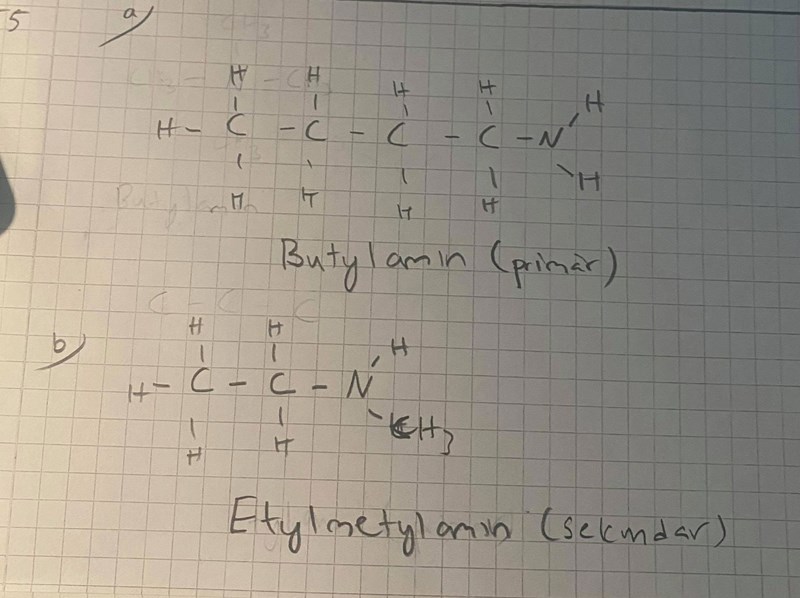 5
a)
H H H H H
H - C - C - C - C - N
H H H H H
Butylamin (primär)
b)
H H H
H - C - C - N
H H CH3
Etylmetylamin (sekundär)